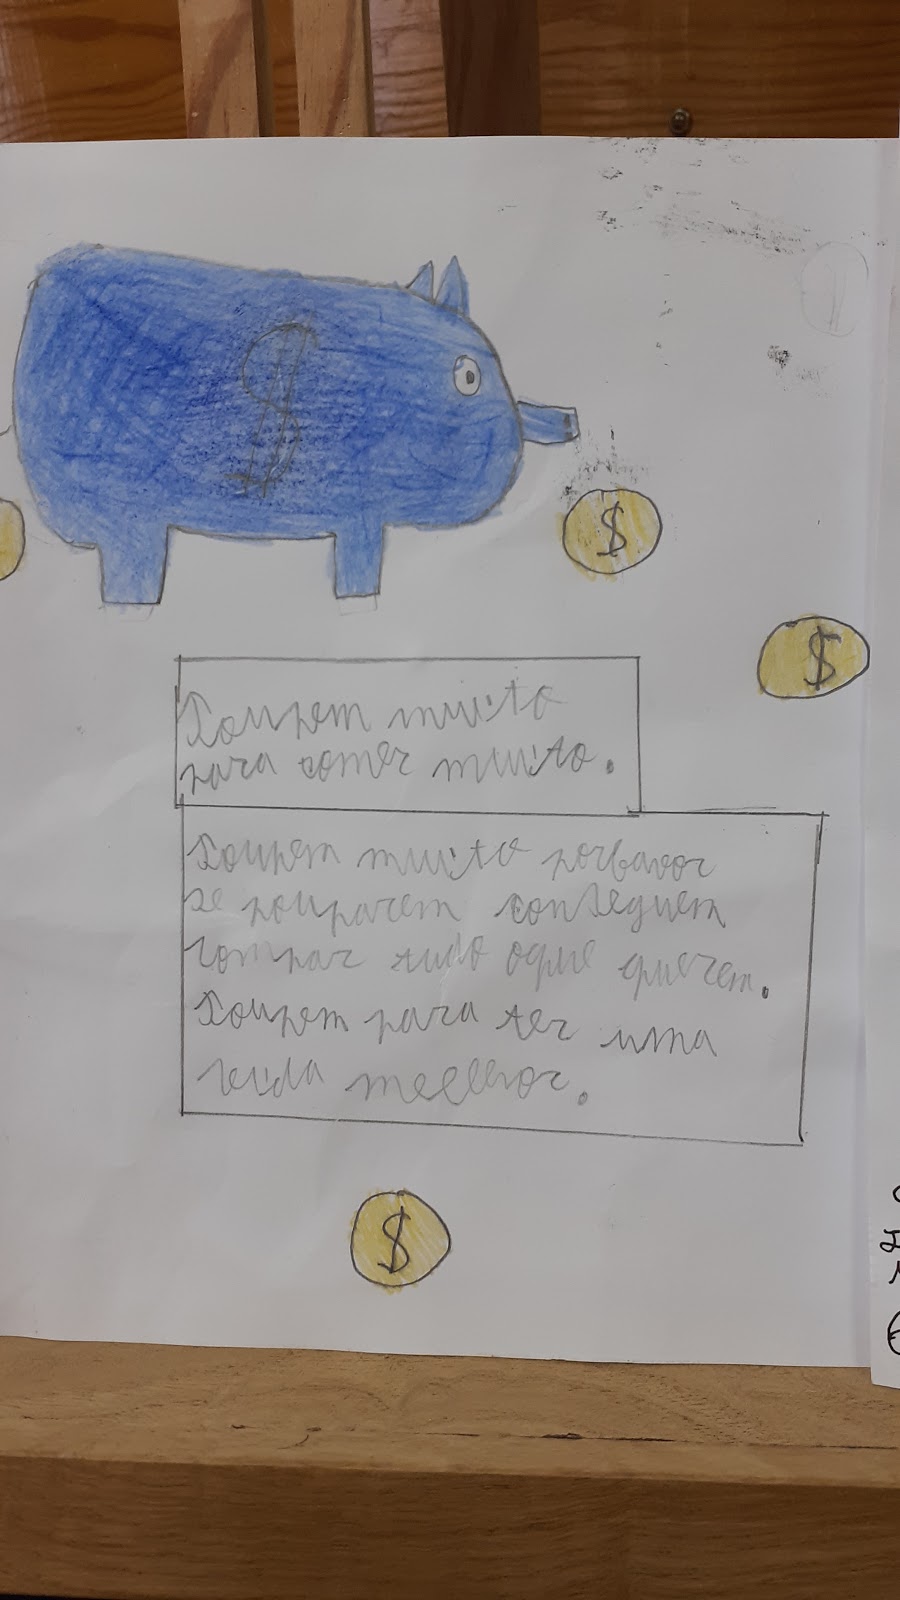 $
$
$
Poupem muito
para comer muito.
Poupem muito porbavor
se pouparem conseguem
compar tudo oque querem.
Poupem para ter uma
vida meelhor.
$